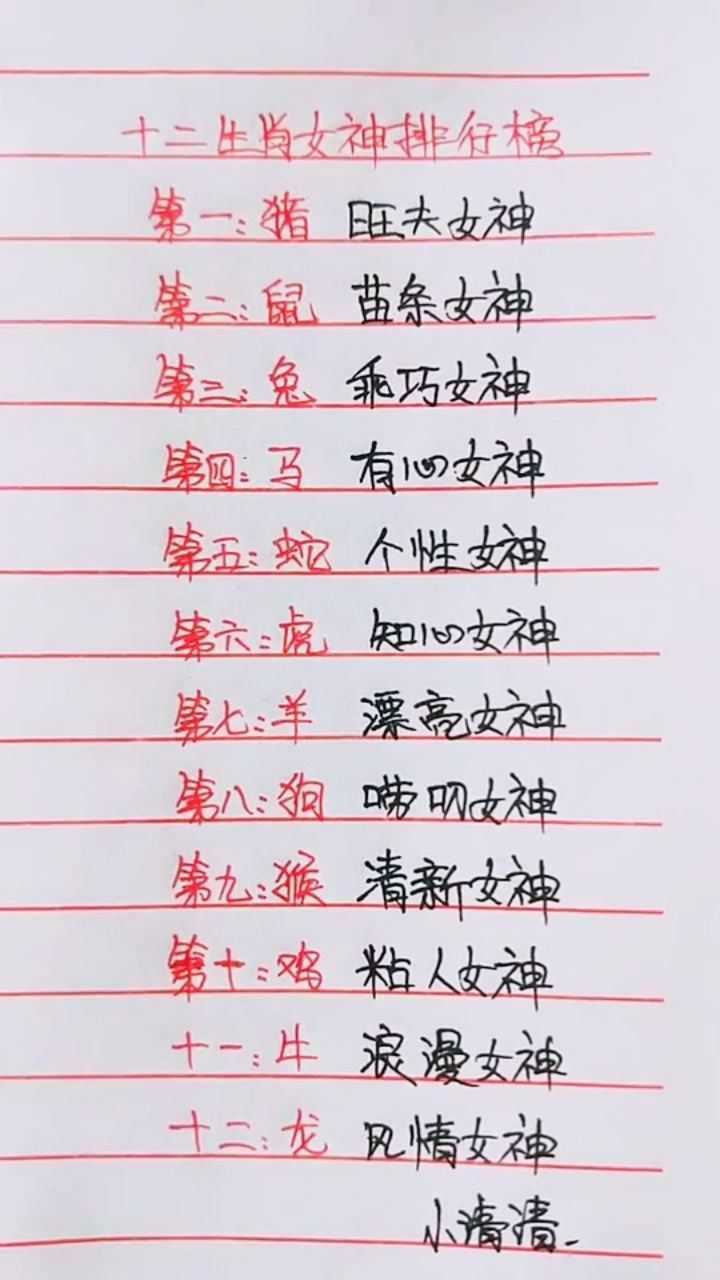 十二生肖女神排行榜
第一:猪 旺夫女神
第二:鼠 苗条女神
第三:兔 乖巧女神
第四:马 有心女神
第五:蛇 个性女神
第六:虎 知心女神
第七:羊 漂亮女神
第八:狗 唠叨女神
第九:猴 清新女神
第十:鸡 粘人女神
十一:牛 浪漫女神
十二:龙 风情女神
小清清.